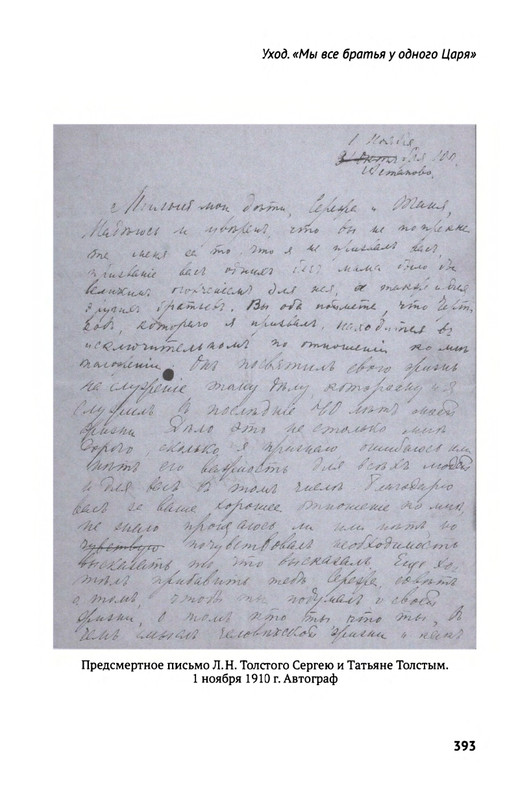 Уход. «Мы все братья у одного Царя»
1 Ноября
Астапово.
Милые мои дѣти, Сережа и Таня,
Надѣюсь и увѣренъ, что вы не попрекне
те меня за то, что я не призвалъ васъ.
призваніе васъ однихъ безъ мама было бы
великимъ огорченіемъ для нея, а также и для
другихъ братьевъ. Вы оба поймете, что Черт
ковъ, котораго я призвалъ, находится въ
исключительномъ по отношенію ко мнѣ
положеніи. Онъ посвятилъ свою жизнь
на служеніе тому дѣлу которому и я
служилъ въ послѣдніе 40 лѣтъ моей
жизни. Дѣло это не столько мнѣ
дорого, сколько я признаю ошибаюсь или
нѣтъ его важность для всѣхъ людей
и для васъ въ томъ числѣ. Благодарю
васъ за ваше хорошее отношеніе ко мнѣ.
не знаю прощаюсь ли или нѣтъ но
чувствую почувствовалъ необходимость
высказать то что высказалъ. Еще хо
тѣлъ прибавить тебѣ Сережа, совѣтъ
о томъ, чтобъ ты подумалъ о своей
жизни, о томъ кто ты что ты, въ
чемъ смыслъ человѣческой жизни и какъ
Предсмертное письмо Л. Н. Толстого Сергею и Татьяне Толстым.
1 ноября 1910 г. Автограф
393